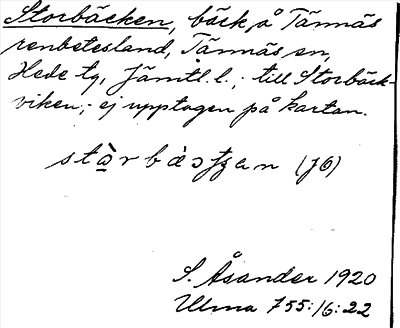 Storbäcken, bäck å Tännäs
renbetesland, Tännäs sn,
Hede tg, Jämtl. l.; till Storbäck-
viken; ej upptagen på kartan.
S. Åsander 1920
Ulma 755:16:22